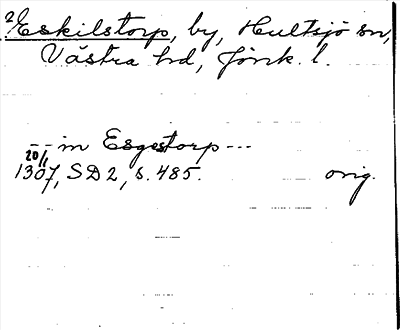 2 Eskilstorp, by, Hultsjö sn,
Västra hd, Jönk. l.
-- in Esgestorp ---
20/1
1307, SD 2, s. 485. orig.